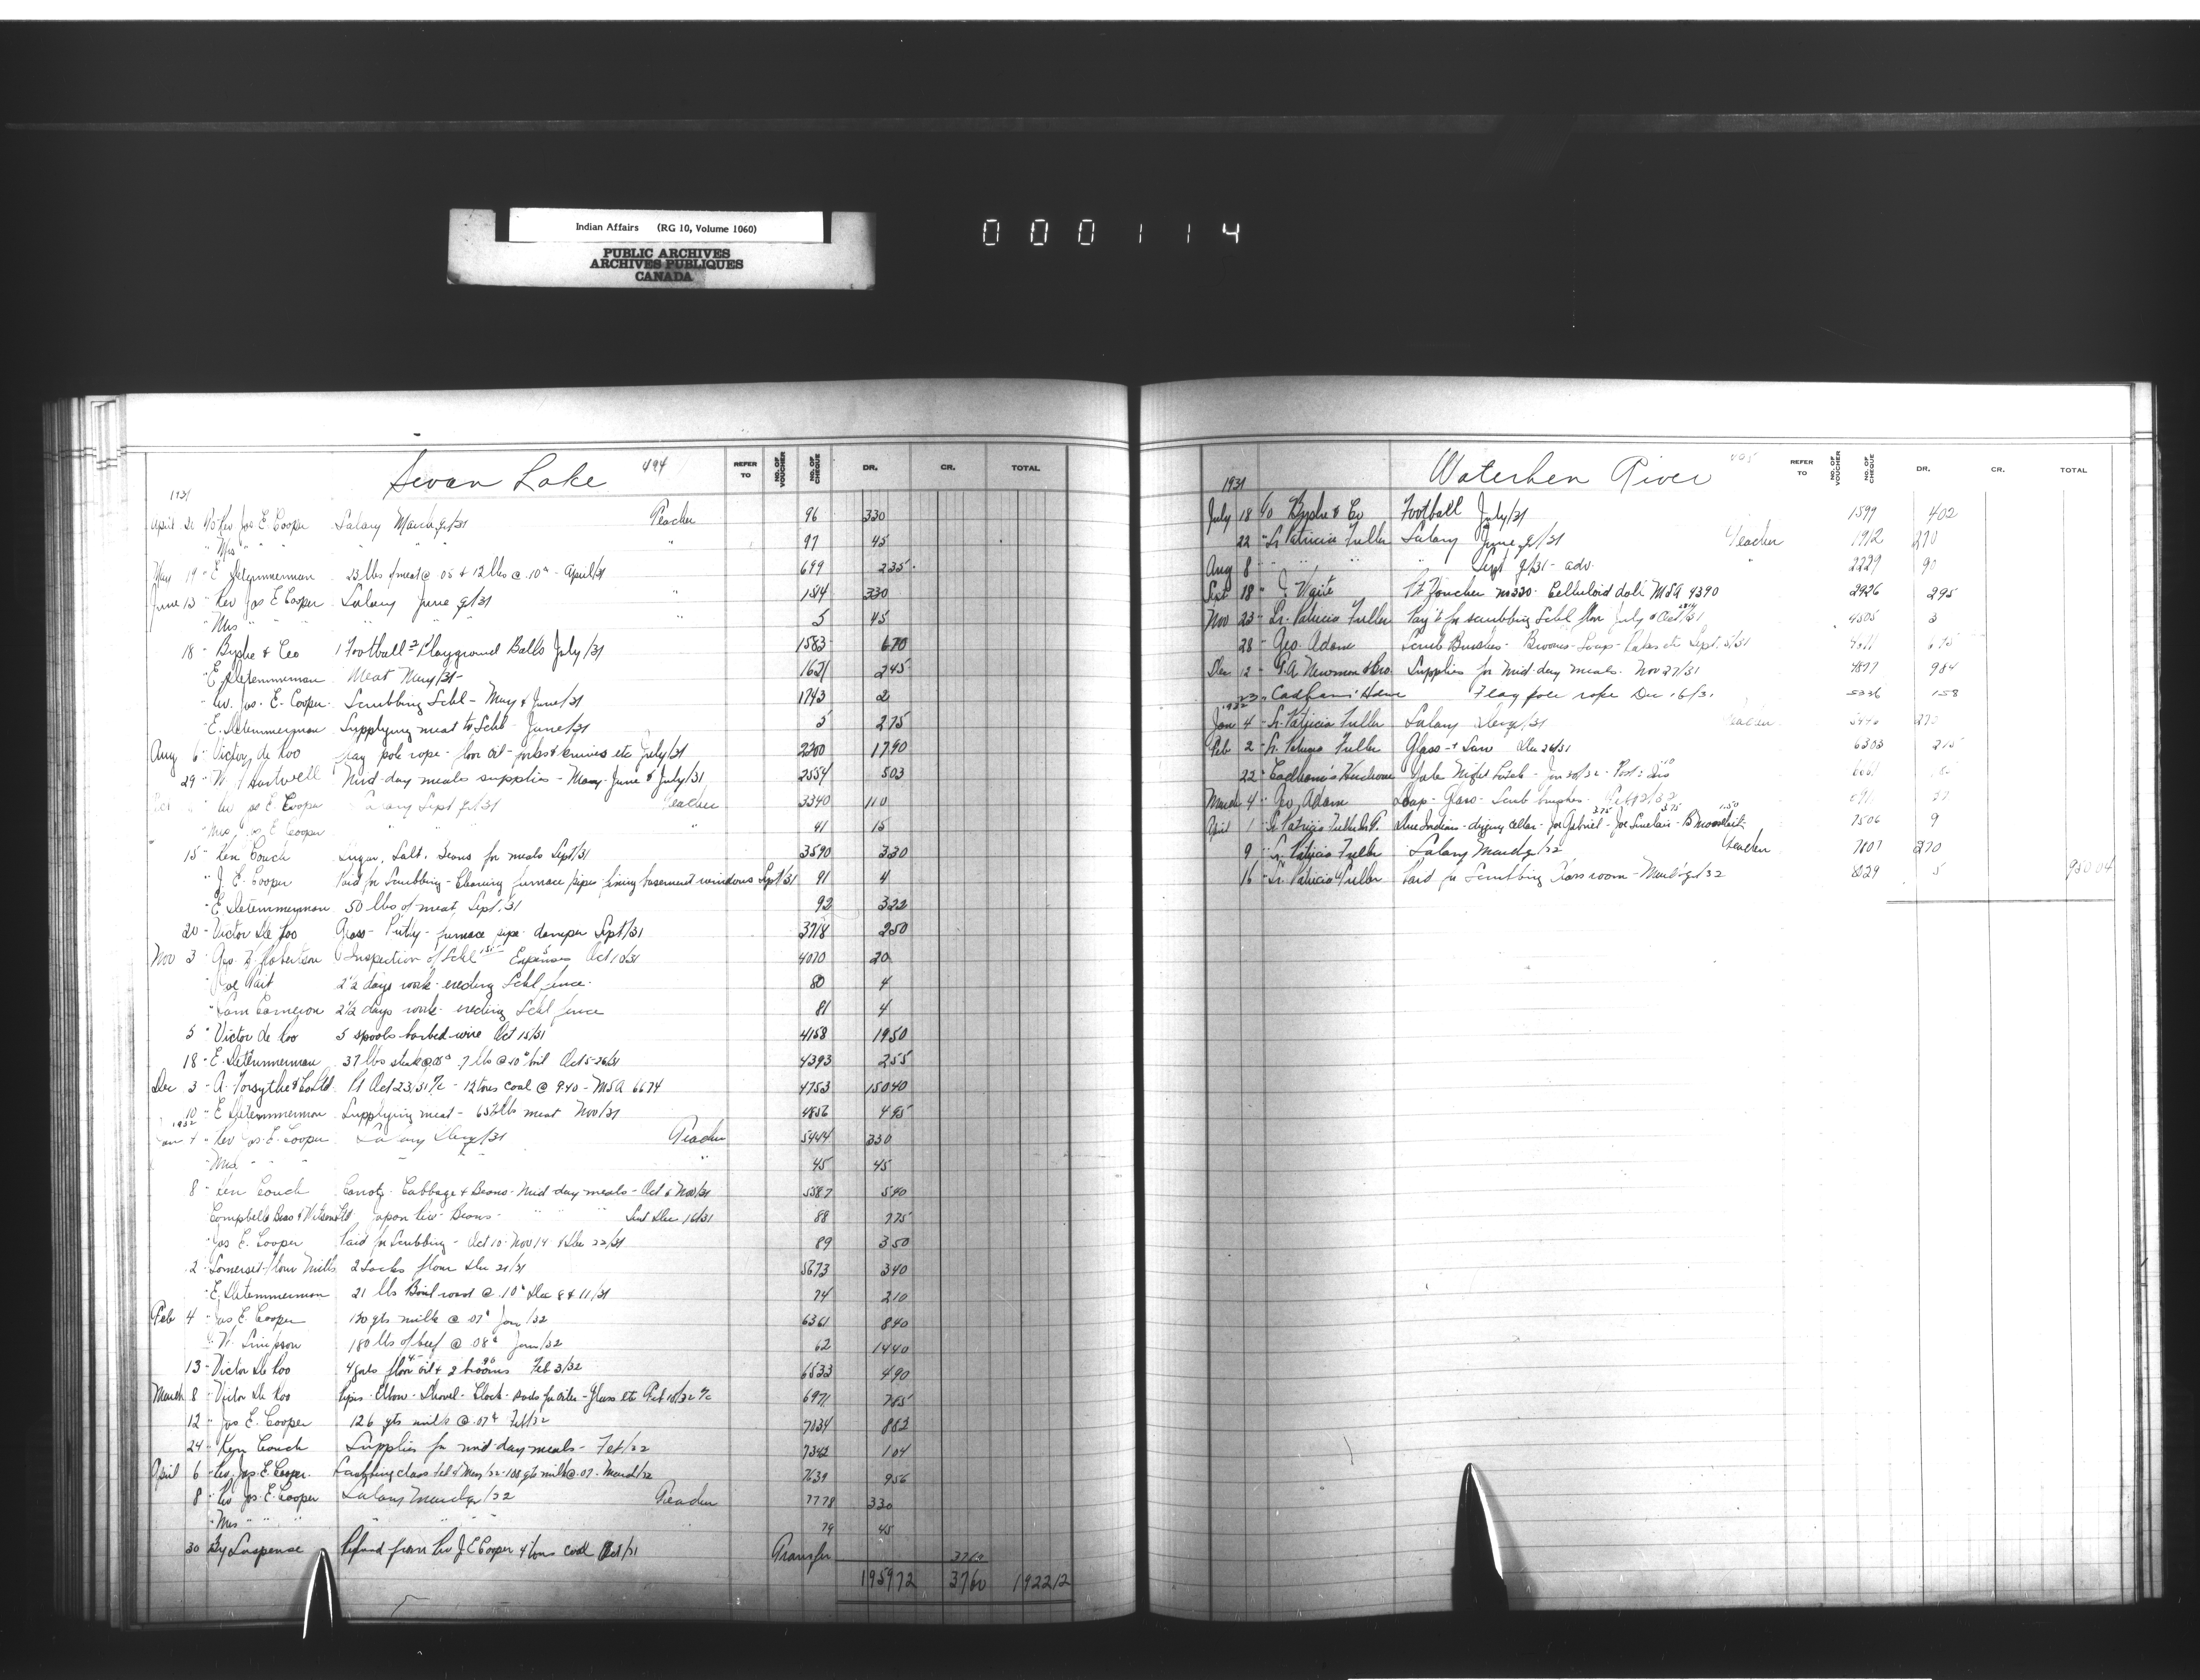 Indian Affairs (RG 10, Volume 1060)
PUBLIC ARCHIVES
ARCHIVES PUBLIQUES
CANADA
000114
Swan Lake 494
REFER TO NO. OF VOUCHER NO. OF CHEQUE DR. CR. TOTAL
1931
April 20 Rev Jas E. Cooper Salary March q/31 Teacher 96 330
" Mrs " " " " " 97 45
May 19 " E Detemmerman 23 lbs of meat @ .05 & 12 lbs @ .10 - April/31 699 235
June 13 " Rev Jas E Cooper Salary June q/31 " 1584 330
" Mrs " " " 5 45
18 " Byshe & Co 1 Football 2 Playground Balls July/31 1583 670
" E Detemmerman Meat May/31 1621 245
" Rev. Jas. E. Cooper Scrubbing Schl - May & June/31 1743 2
" E. Detemmerman Supplying meat to Schl June/31 5 275
Aug 6 " Victor de Roo flag pole rope - floor oil - forks & knives etc July/31 2300 1790
29 " Hartwell Mid-day meals supplies - May June & July/31 2554 503
Oct " Rev Jas E. Cooper Salary Sept q/31 Teacher 3340 110
" Mrs Jas E Cooper " " 41 15
15 " Ken Couch Sugar, Salt, Beans for meals Sept/31 3590 330
" J. E. Cooper Paid for Scrubbing - Cleaning furnace pipes fixing basement windows Sept/31 91 4
" E Detemmerman 50 lbs of meat, Sept/31 92 322
20 " Victor De Roo Glass - Putty - furnace pipe - damper Sept/31 3718 250
Nov 3 " Geo. Robertson Inspection of Schl Expenses Oct 10/31 4070 20
" Joe Tait 2½ days work - erecting Schl fence 80 4
" Sam Cameron 2½ days work - erecting Schl fence 81 4
5 " Victor de Roo 5 spools barbed wire Oct 15/31 4158 1950
18 " E. Detemmerman 37 lbs steak @ .05 7 lbs @ 10 boil Oct 5-26/31 4393 255
Dec 3 " A. Forsythe & Co Ltd Pt Oct 23/31 a/c - 12 tons coal @ 9.40 - MSA 6674 4753 15040
10 " E Detemmerman Supplying meat - 65½ lbs meat Nov/31 4856 495
1932
Jan 4 " Rev Jas. E. Cooper Salary Dec q/31 Teacher 5444 330
" Mrs " " " " " 45 45
8 " Ken Couch Carrots - Cabbage & Beans - Mid day meals - Oct & Nov/31 5587 540
Campbell Bros & Wilson Ltd Japan Rice - Beans - " " " Dec 16/31 88 775
" Jas E. Cooper Paid for Scrubbing - Oct 10 - Nov 14 & Dec 22/31 89 350
2 " Somerset Flour Mills 2 Sacks flour Dec 21/31 5673 340
" E. Detemmerman 21 lbs Boil roast @ .10 Dec 8 & 11/31 74 210
Feb 4 " Jas E. Cooper 120 qts milk @ .07 Jan/32 6361 840
" W. Simpson 180 lbs of beef @ .08 Jan/32 62 1440
13 " Victor De Roo floor oil & 2 brooms Feb 3/32 6533 490
March 8 " Victor De Roo Pipes - Elbow - Shovel - Clock - Glass etc Feb 10/32 a/c 6971 785
12 " Jas E. Cooper 126 qts milk @ .07 Feb/32 7034 882
24 " Ken Couch Supplies for mid-day meals - Feb/32 7342 104
April 6 " Rev. Jas. E. Cooper milk @ .07 - March/32 7639 956
8 " Rev Jas. E. Cooper Salary March q/32 Teacher 7778 330
" Mrs " " " " " 79 45
30 By Suspense Refund from Rev J E Cooper 4 tons coal Oct/31 Transfer 3760
195972 3760 192212
Waterhen River 495
REFER TO NO. OF VOUCHER NO. OF CHEQUE DR. CR. TOTAL
1931
July 18 Byshe & Co Football July/31 1599 402
22 " Sr. Patricia Fuller Salary June q/31 Teacher 1912 270
Aug 8 " " " " Sept q/31 - adv. " 2229 90
Sept 18 " Waite Pt Voucher no 330 - Celluloid doll MSA 4390 2926 295
Nov 23 " Sr. Patricia Fuller Pay't for scrubbing Schl floor July & Oct/31 4505 3
28 " Geo. Adam Scrub Brushes - Brooms - Soap - Rakes etc Sept. 5/31 675
Dec 12 " G.A. Newman & Bro Supplies for Mid-day meals. Nov 27/31 4877 984
23 " Cadham's Hdwe Flag pole rope Dec 16/31 5336 158
1932
Jan 4 " Sr. Patricia Fuller Salary Dec q/31 Teacher 270
Feb 2 " Sr. Patricia Fuller Glass - & Saw Dec 26/31 6303 215
22 " Cadham's Hardware Yale Night Latch - Jan 30/32
March 4 " Geo. Adam Soap - Glass - Scrub brushes
April 1 " Sr. Patricia Fuller Indians - digging cellar - Joe Gabriel - Joe Sinclair 7506 9
9 " Sr. Patricia Fuller Salary March q/32 Teacher 7807 270
16 " Sr. Patricia Fuller Paid for Scrubbing Class room - March q/32 8029 5 95004